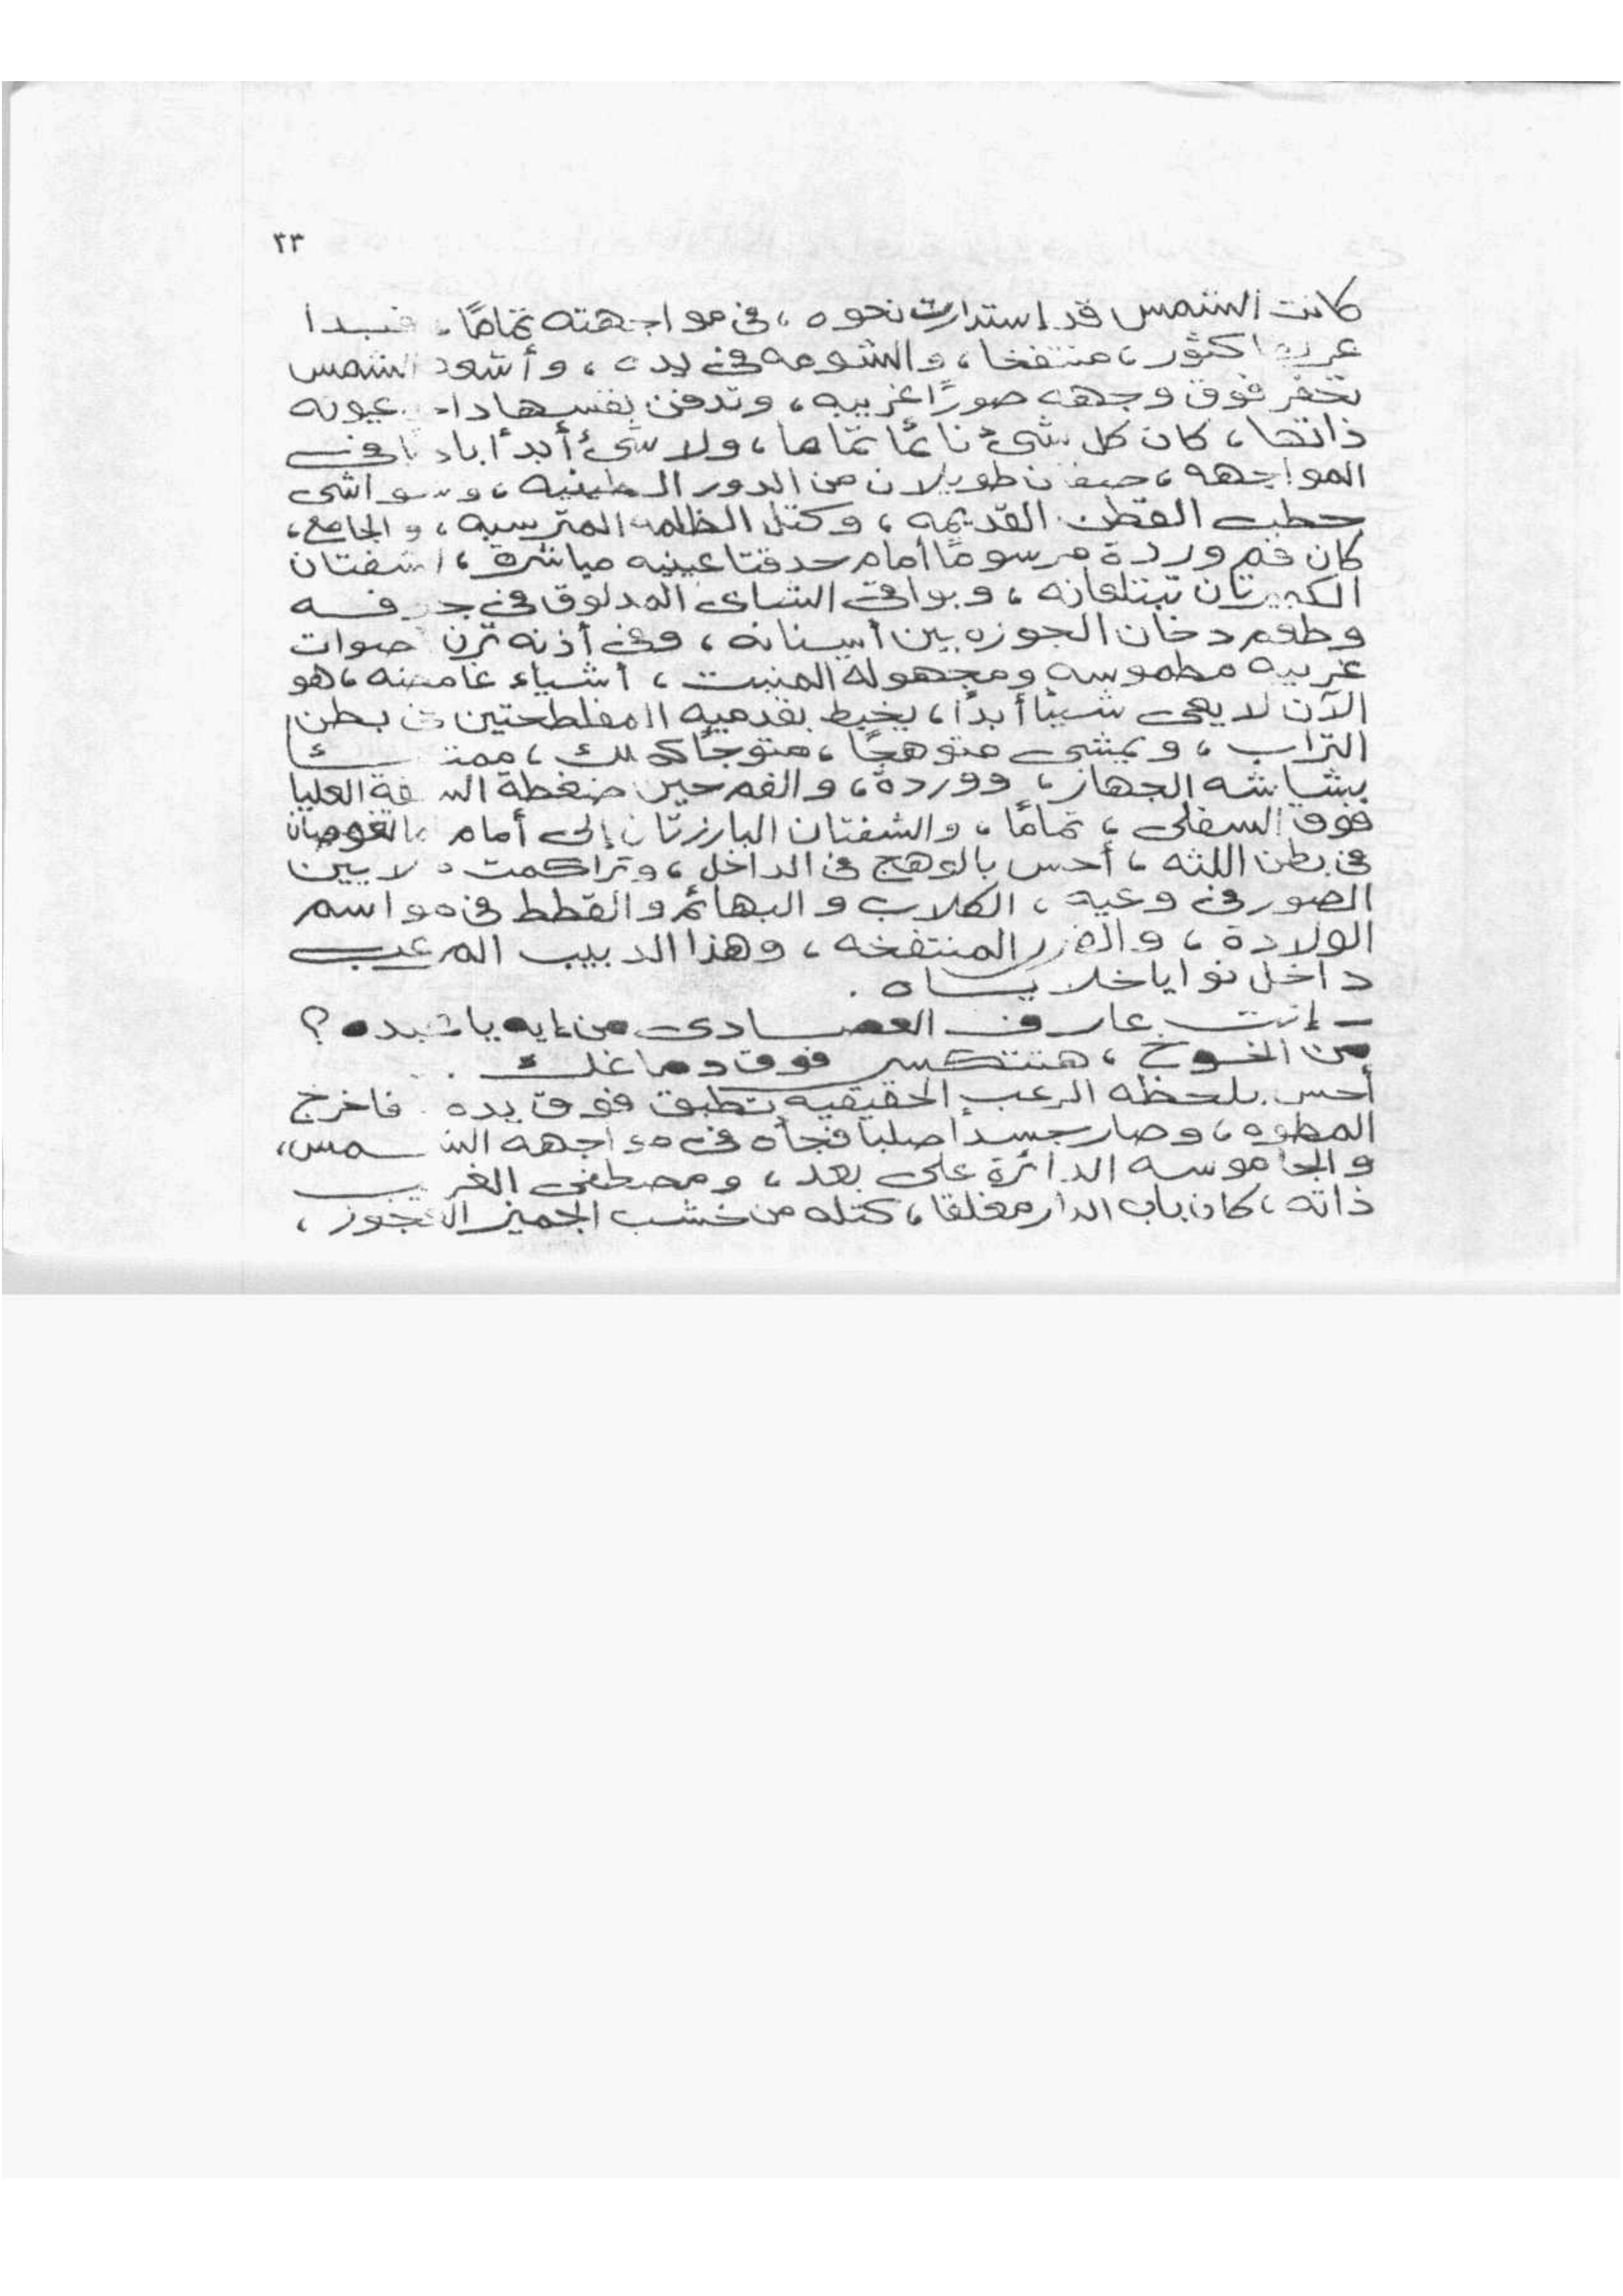 ٢٣
كانت الشمس قد إستدارت نحوه ، فى مواجهته تمامًا ، فبدا
كثور ، منتفخا ، والشومه فى يده ، و الشمس
تحفر فوق وجهه صورًا غريبه ، وتدفن نفسها عيونه
ذاتها ، كان كل شئ نائمًا تماما ، ولا شئ أبدأ فى
المواجهه ، صفان طويلان من الدور الطينيه ، و
حطب القطن القديمه ، وكتل الظلمه المترسبه ، والجامع ،
كان فم وردة مرسومًا أمام حدقتا عينيه مباشرة ، الشفتان
الكبيرتان تبتلعانه ، وبواقى الشاى المدلوق فى جوفه
وطعم دخان الجوزه بين أسنانه ، وفى أذنه ترن أصوات
غريبه مطموسه ومجهولة المنبت ، أشياء غامضه ، هو
الآن لا يعى شيئا أبدًا ، يخبط بقدميه المفلطحتين فى بطن
التراب ، ويمشى متوهجًا ، متوجًا كملك ، ممتـــئا
بشاشه الجهاز ، ووردة ، والفم حين ضغطة الشفة العليا
فوق السفلى ، تمامًا ، والشفتان البارزتان إلى أمام تغوصان
فى بطن اللثه ، أحس بالوهج فى الداخل ، وتراكمت ملايين
الصور فى وعيه ، الكلاب والبهائم والقطط فى مواسم
الولادة ، والغرر المنتفخه ، وهذا الدبيب المرعب
داخل نوايا خلايـــاه .
– إنت عارف العصـــادى من إيه يا شبده ؟
من الخوخ ، هتتكسر فوق دماغك .
أحس بلحظه الرعب الحقيقيه تطبق فوق يده . فاخرج
المطوه ، وصار جسدأ صلبا فجأه فى مواجهه الشـــمس ،
والجاموسه الدائرة على بعد ، ومصطفى الغريب
ذاته ، كان باب الدار مغلقا ، كتله من خشب الجميز العجوز ،